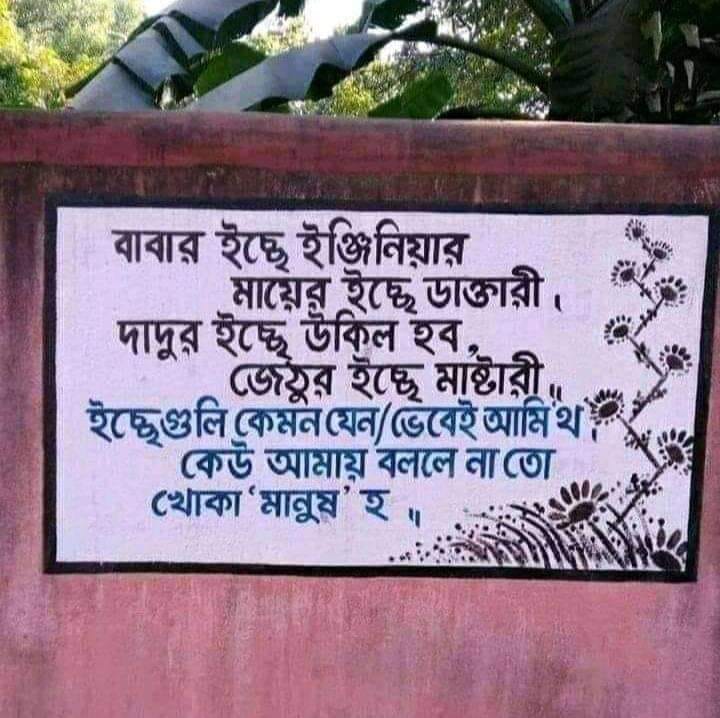 বাবার ইচ্ছে ইঞ্জিনিয়ার
মায়ের ইচ্ছে ডাক্তারী।
দাদুর ইচ্ছে উকিল হব,
জেঠুর ইচ্ছে মাষ্টারী॥
ইচ্ছেগুলি কেমন যেন/ভেবেই আমি থ।
কেউ আমায় বললে না তো
খোকা ‘মানুষ’ হ॥